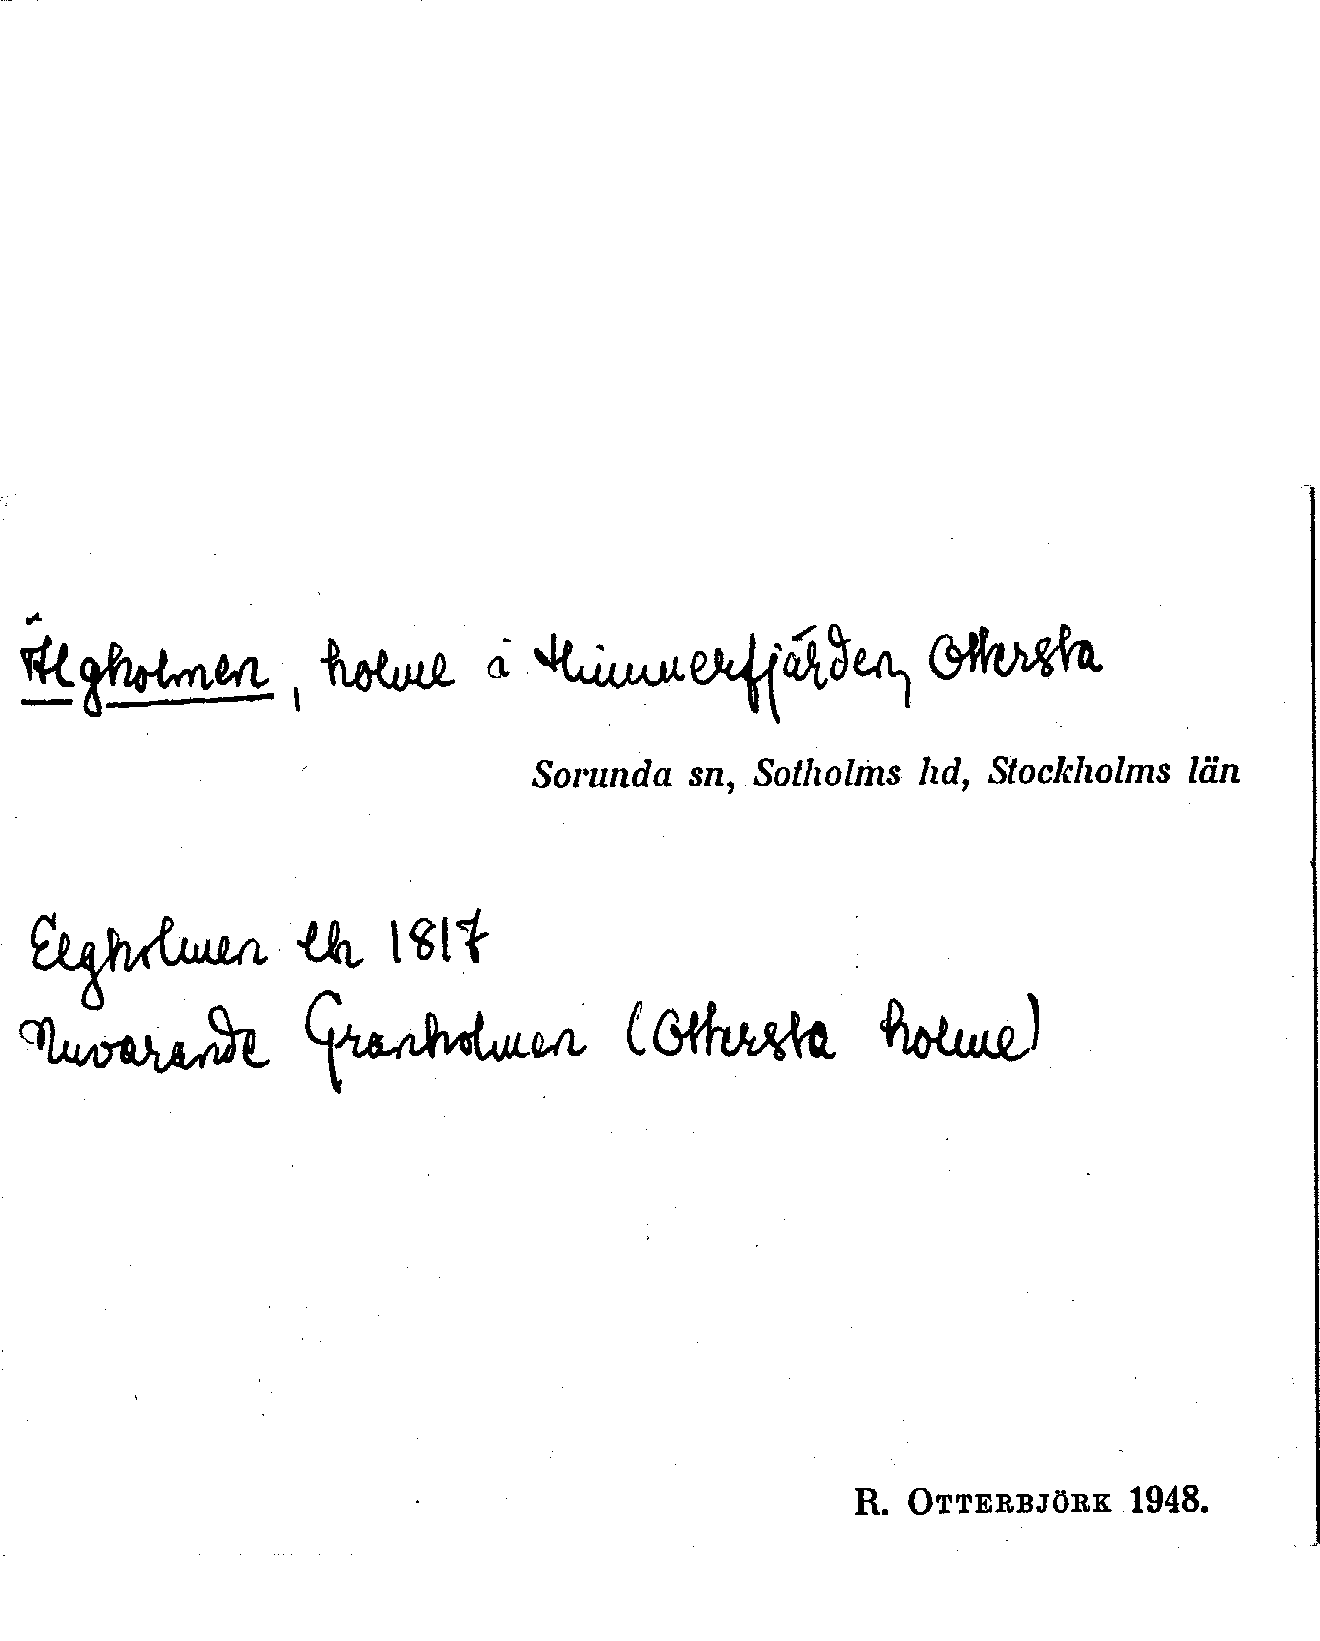 Älgholmen, holme å Himmerfjärden, Ottersta
Sorunda sn, Sotholms hd, Stockholms län
Elgholmen lh 1817
Nuvarande Granholmen (Ottersta holme)
R. OTTERBJÖRK 1948.